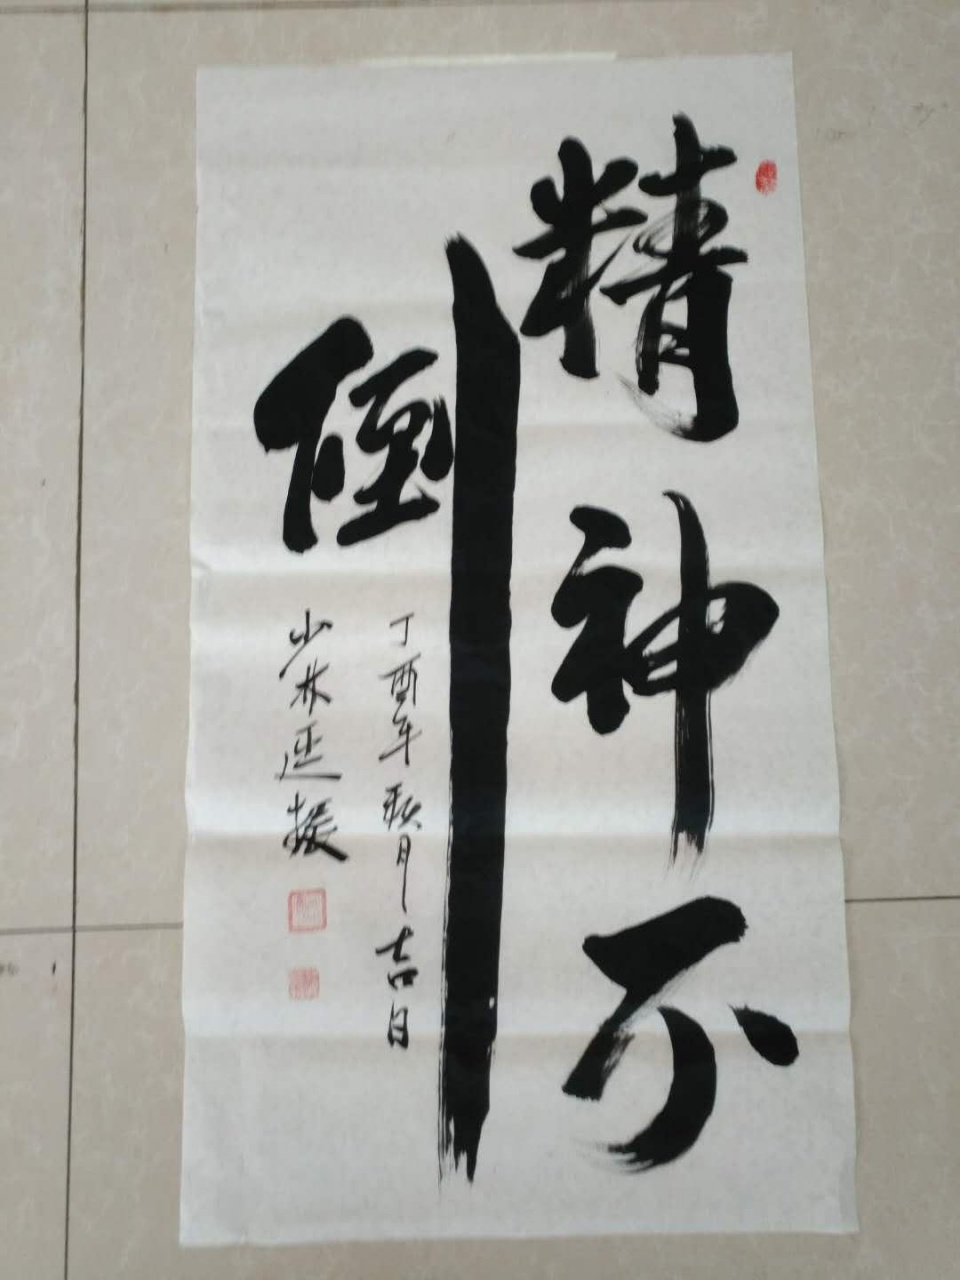 精神不
倒
丁酉年秋月吉日
少林延振